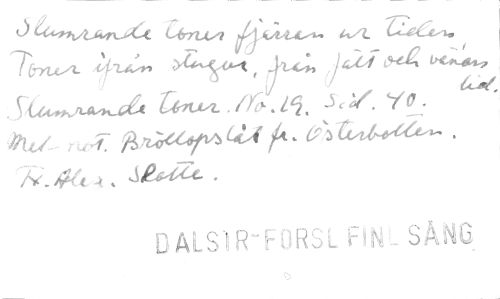 Slumrande toner fjärran ur tiden
Toner ifrån stugor, från fält och vänan
lid.
Slumrande toner. No. 19. Sid. 40.
Mel- not. Bröllopslåt fr. Österbotten.
Tx. Alex. Slotte.
DALSIR-FORSL FINL SÅNG